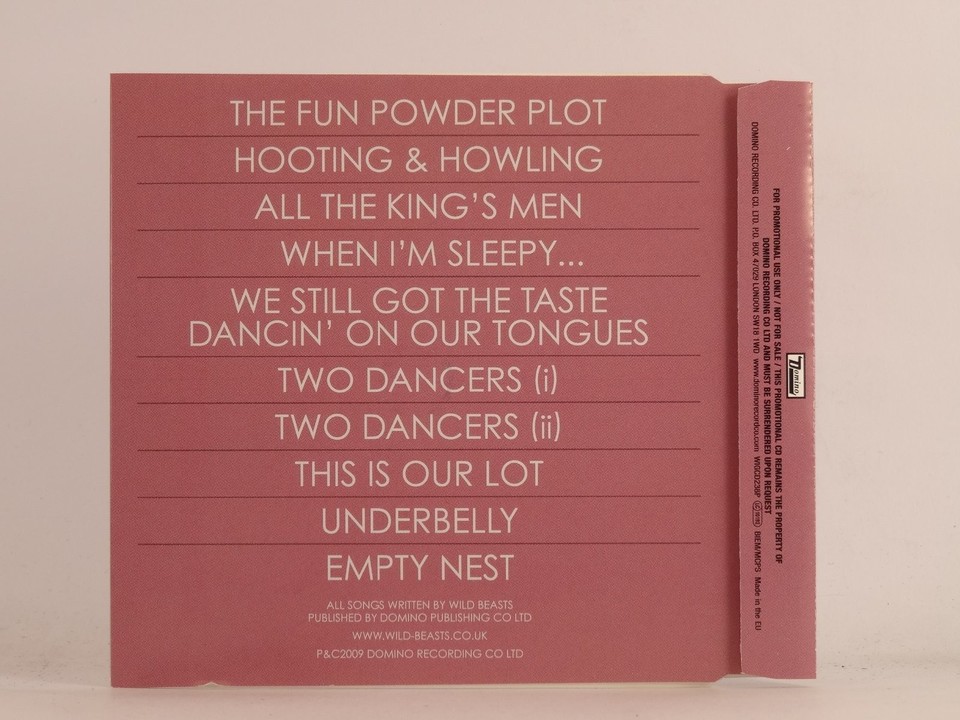 THE FUN POWDER PLOT
HOOTING & HOWLING
ALL THE KING'S MEN
WHEN I'M SLEEPY...
WE STILL GOT THE TASTE
DANCIN' ON OUR TONGUES
TWO DANCERS (i)
TWO DANCERS (ii)
THIS IS OUR LOT
UNDERBELLY
EMPTY NEST
ALL SONGS WRITTEN BY WILD BEASTS
PUBLISHED BY DOMINO PUBLISHING CO LTD
WWW.WILD-BEASTS.CO.UK
P&C2009 DOMINO RECORDING CO LTD
Domino
FOR PROMOTIONAL USE ONLY / NOT FOR SALE / THIS PROMOTIONAL CD REMAINS THE PROPERTY OF
DOMINO RECORDING CO LTD AND MUST BE SURRENDERED UPON REQUEST
DOMINO RECORDING CO. LTD. P.O. BOX 47029 LONDON SW18 1WD www.dominorecordco.com WIGCD238P BIEM/MCPS Made in the EU